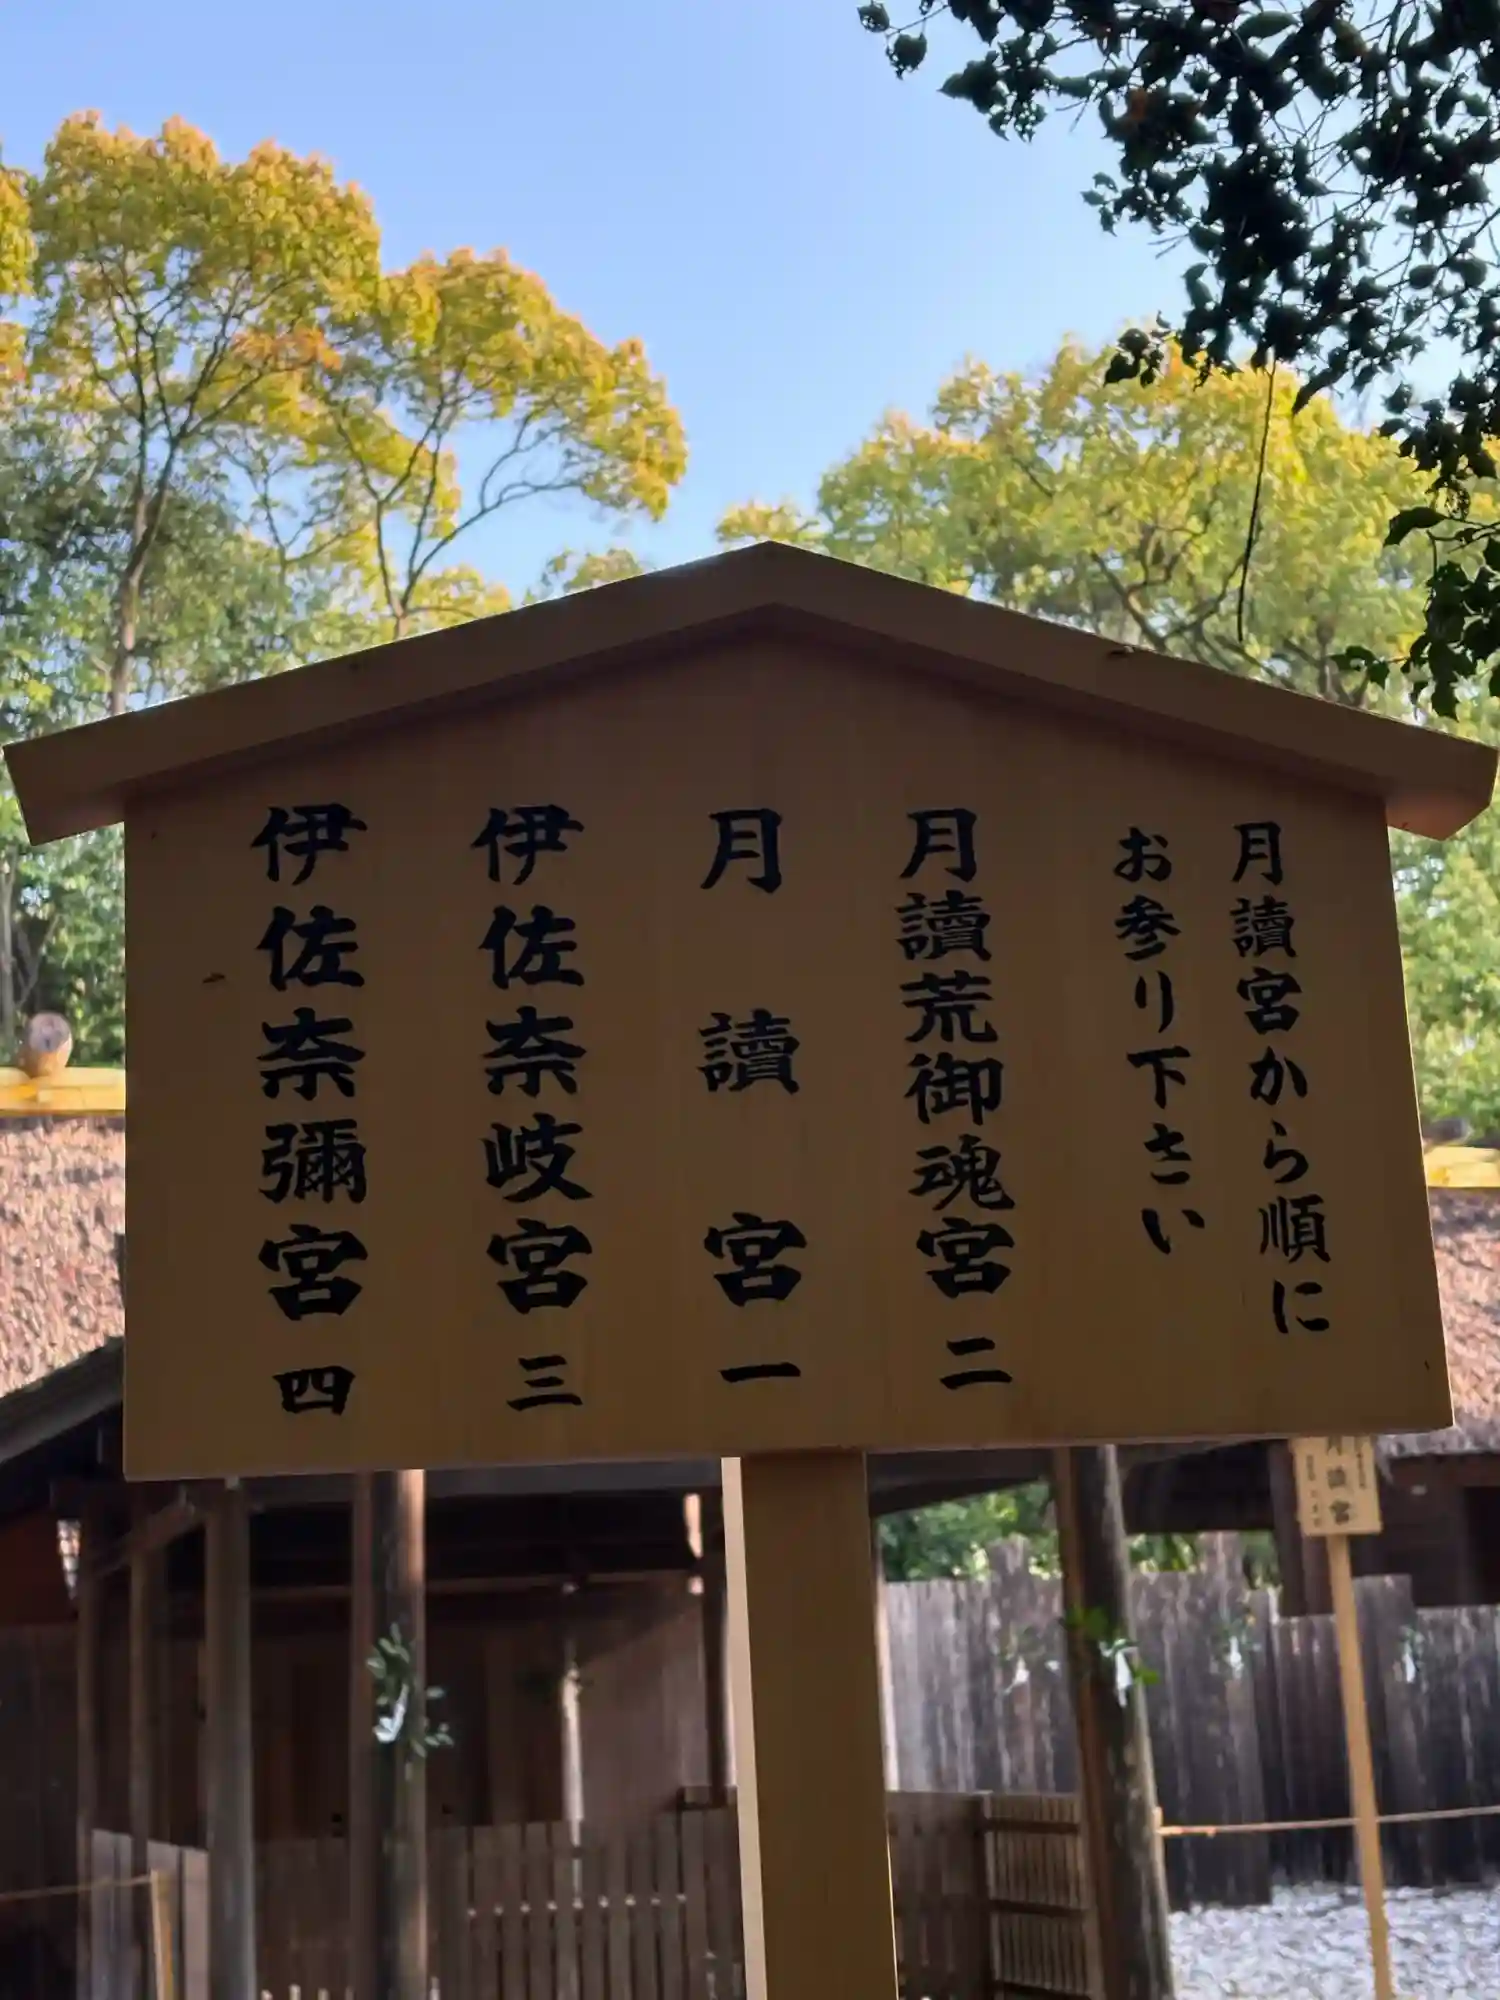 月讀宮から順に
お参り下さい
月讀荒御魂宮 二
月讀宮 一
伊佐奈岐宮 三
伊佐奈彌宮 四
月讀宮